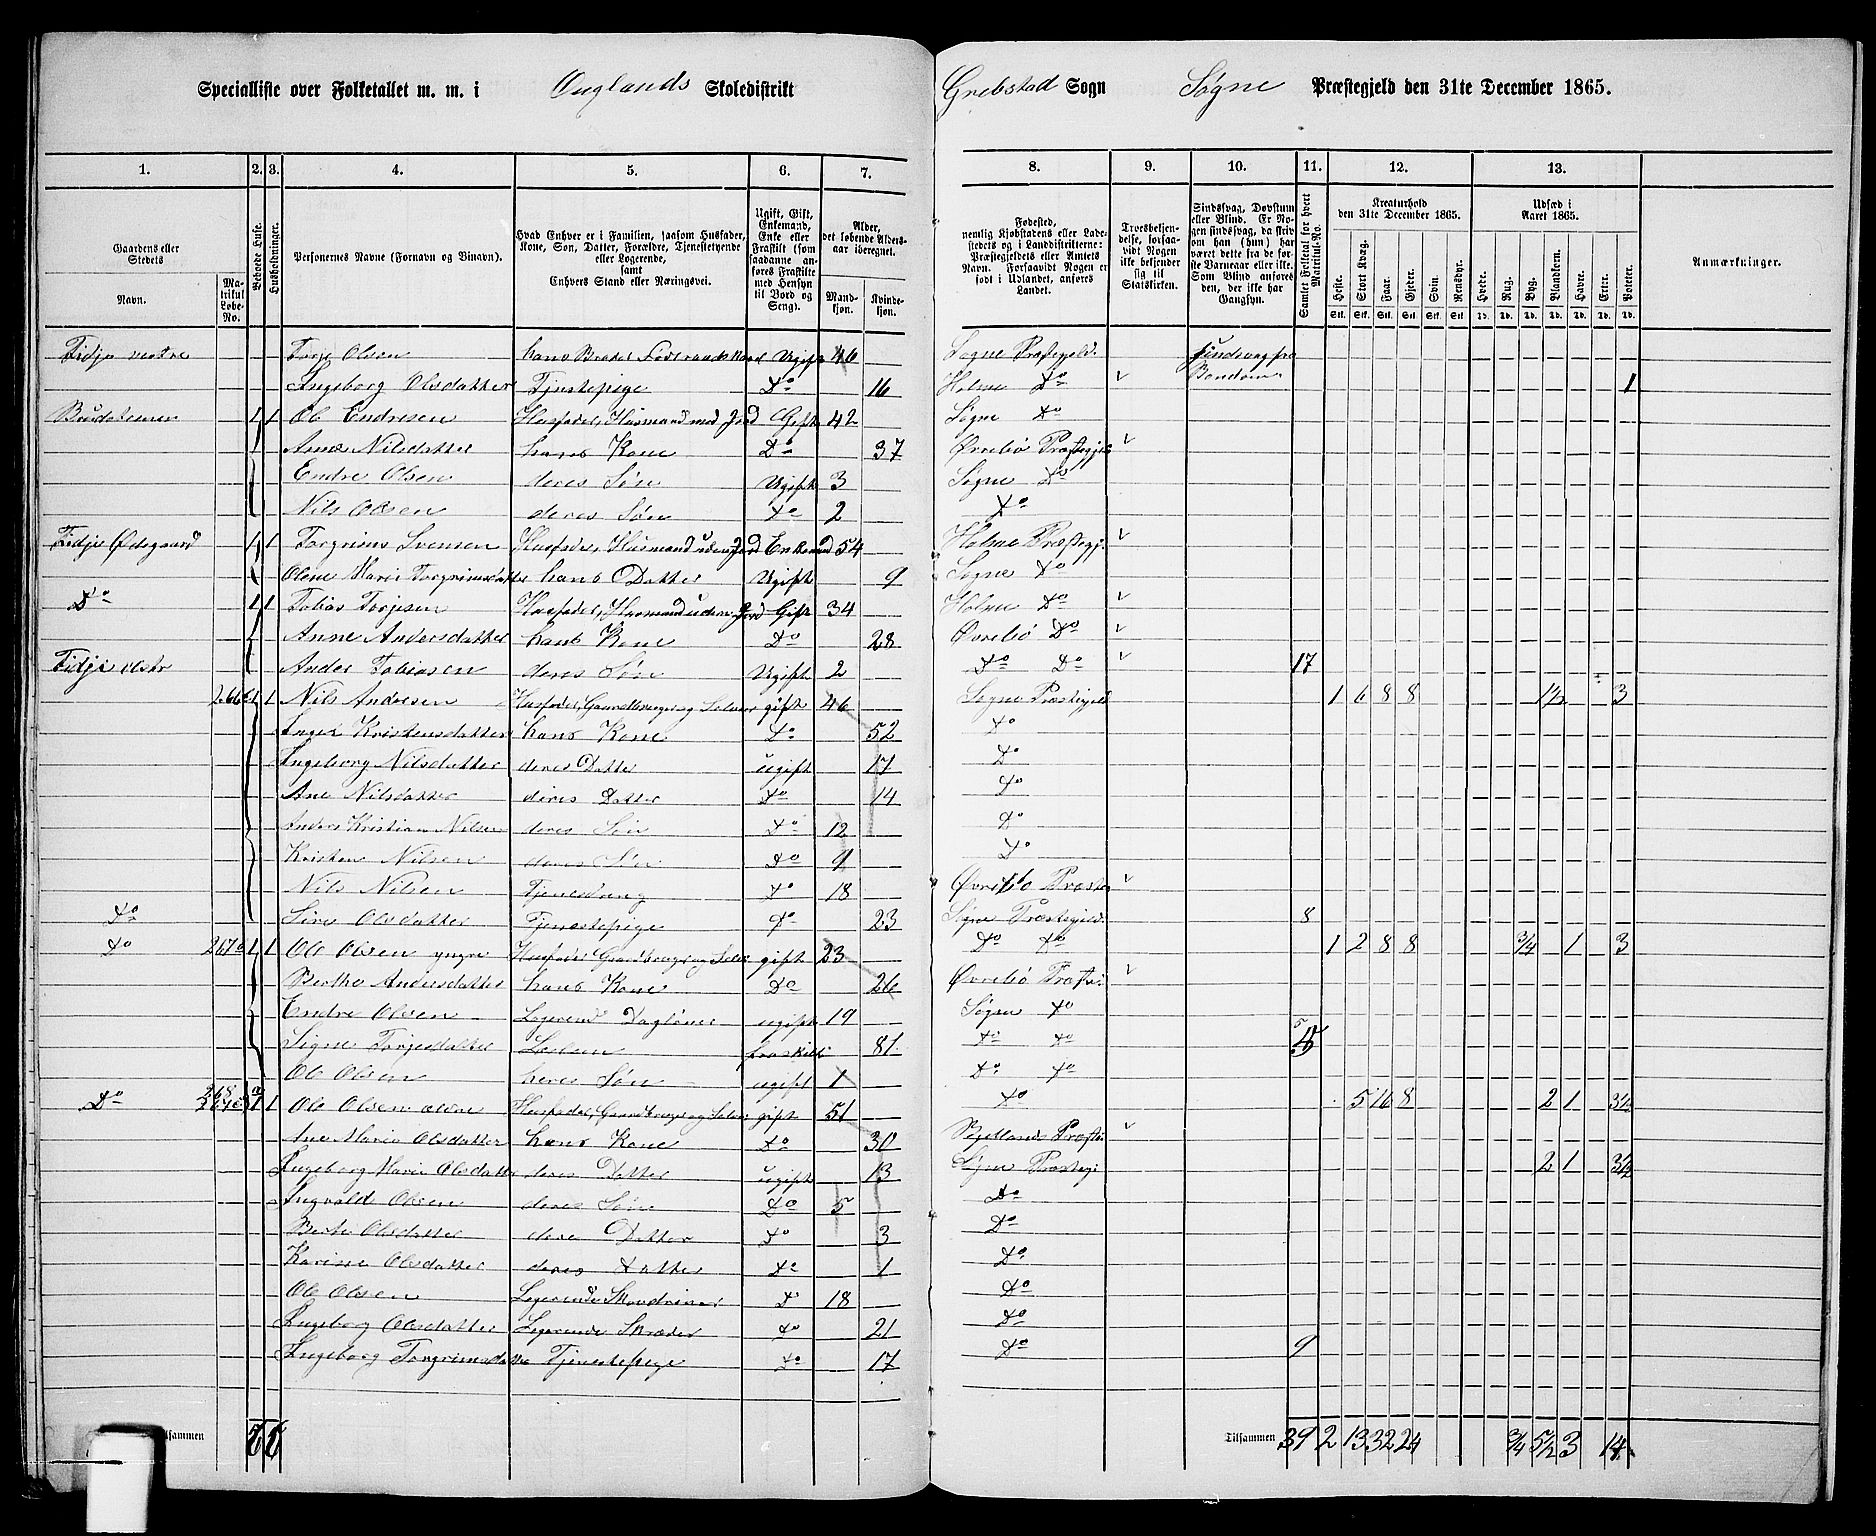 Specialliste over Folketallet m. m. i Ouglands Skoledistrikt Grebstad Sogn Søgne Præstegjeld den 31te December 1865.
1. 2. 3. 4. 5. 6. 7. 8. 9. 10. 11. 12. 13.
Gaardens eller Stedets Navn. Matrikul Løbe-No. Beboede Huse. Husholdninger. Personernes Navne (Fornavn og Tilnavn).
Hvad Enhver er i Familien, saasom Husfader, Kone, Søn, Datter, Forældre, Tjenestetyende eller Logerende, samt Enhvers Stand eller Næringsvei.
Ugift, Gift, Enkemand, Enke eller Fraskilt (som saadanne anføres Fraskilte med Hensyn til Bord og Seng).
Alder, det løbende Aldersaar iberegnet. Mandkjøn. Kvindekjøn.
Fødested, nemlig Kjøbstadens eller Ladestedets og i Landdistrikterne: Præstegjeldets eller Amtets Navn. Forsaavidt Nogen er født i Udlandet, anføres Landet.
Troesbekjendelse, forsaavidt Nogen ikke bekjender sig til Statskirken.
Samlet Folketal for hvert Matrikul-No.
Kreaturhold den 31te December 1865. Heste. Stort Kvæg. Faar. Gjeder. Svin. Rensdyr.
Udsæd i Aaret 1865. Hvede. Rug. Byg. Blandkorn. Havre. Erter. Poteter.
Anmærkninger.
Fidje vestre Torje Olsen hans Broder Ugift 46 Søgne Præstegjeld
Ingeborg Olsdatter Tjenstepige Do 16 Holme Do 1
1 1 Ole Endresen Husfader, Husmand med Jord Gift 42 Søgne Do
Anne Nilsdatter hans Kone Do 37 Øvrebø Præstegje
Endre Olsen deres Søn Ugift 3 Søgne Do
Nils Olsen deres Søn Do 2 Do
Fidje Ødegaard 1 1 Torgrims Svensen Husfader, Husmand uden Jord Enkemand 54 Holme Præstegj.
Olene Marie Torgrimsdatter hans Datter Ugift 9 Søgne Do
Do 1 1 Tobias Torjesen Husfader, Husmand uden Jord Gift 34 Holme Do
Anne Andersdatter hans Kone Do 28 Øvrebø Do
Fidje østr Anders Tobiasen deres Søn Ugift 2 Do Do 17
266 1 1 Nils Andersen Husfader, Gaardbruger og Selveier gift 46 Søgne Præstegjeld 1 6 8 8 1½ 3
Inger Kristensdatter hans Kone Do 52 Do
Ingeborg Nilsdatter deres Datter ugift 17 Do
Ane Nilsdatter deres Datter Do 14 Do
Anders Kristian Nilsen deres Søn Do 12 Do
Kristen Nilsen deres Søn Do 9 Do
Nils Nilsen Tjenesdreng Do 18 Øvrebø Præste
Do Siri Olsdatter Tjenestepige Do 23 Søgne Præstegjeld. 8
Do 267a 1 1 Ole Olsen yngre Husfader Gaardbruger og Selv gift 23 Do Do 1 2 8 8 3/4 1 3
Berthe Andersdatter hans Kone Do 26 Øvrebø Præste
Endre Olsen Logerend Dagløner ugift 19 Søgne Do
Signe Torjesdatter fraskilt 81 Do Do 5
Ole Olsen deres Søn ugift 1 Do Do
Do 268 1 1 Ole Olsen ældre Husfader, Gaardbruger og Selv gift 51 Do 5 16 8 2 1 3½
Ane Marie Olsdatter hans Kone Do 30 Præste
Ingeborg Marie Olsdatte deres Datter ugift 13 Søgne Præstegj 2 1 3½
Ingvald Olsen deres Søn Do 5 Do
Berte Olsdatter deres Datter Do 3 Do
Karine Olsdatter deres Datter Do 1 Do
Ole Olsen Logerende Do 18 Do
Ingeborg Olsdatter Logerende Skræder Do 21 Do
Ingeborg Torgrimsdatte Tjenestepige Do 17 Do 9
Tilsammen 6 6 Tilsammen 39 2 13 32 24 3/4 5½ 3 14